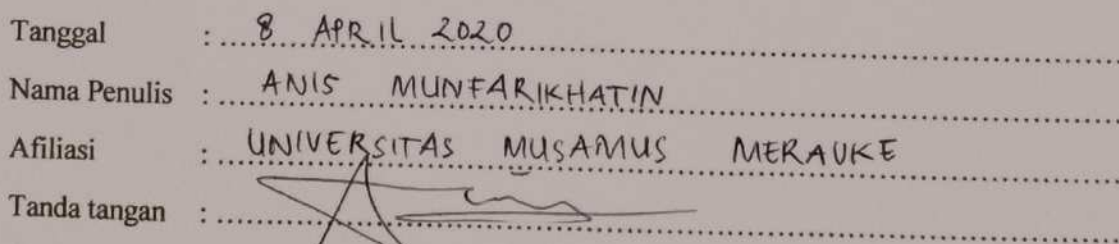 Tanggal : 8 APRIL 2020
Nama Penulis : ANIS MUNFARIKHATIN
Afiliasi : UNIVERSITAS MUSAMUS MERAUKE
Tanda tangan :